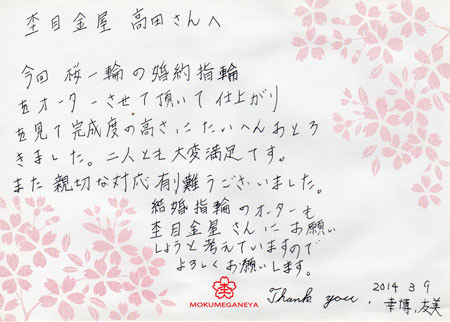 杢目金屋 高田さんへ
今回 桜一輪の婚約指輪
をオーダーさせて頂いて仕上がり
を見て完成度の高さにたいへんおどろ
きました。二人とも大変満足です。
また 親切な対応有難うございました。
結婚指輪のオーダーも
杢目金屋さんにお願い
しようと考えていますので
よろしくお願いします。
MOKUMEGANEYA
Thank you.
2014 3 9
幸博、友美